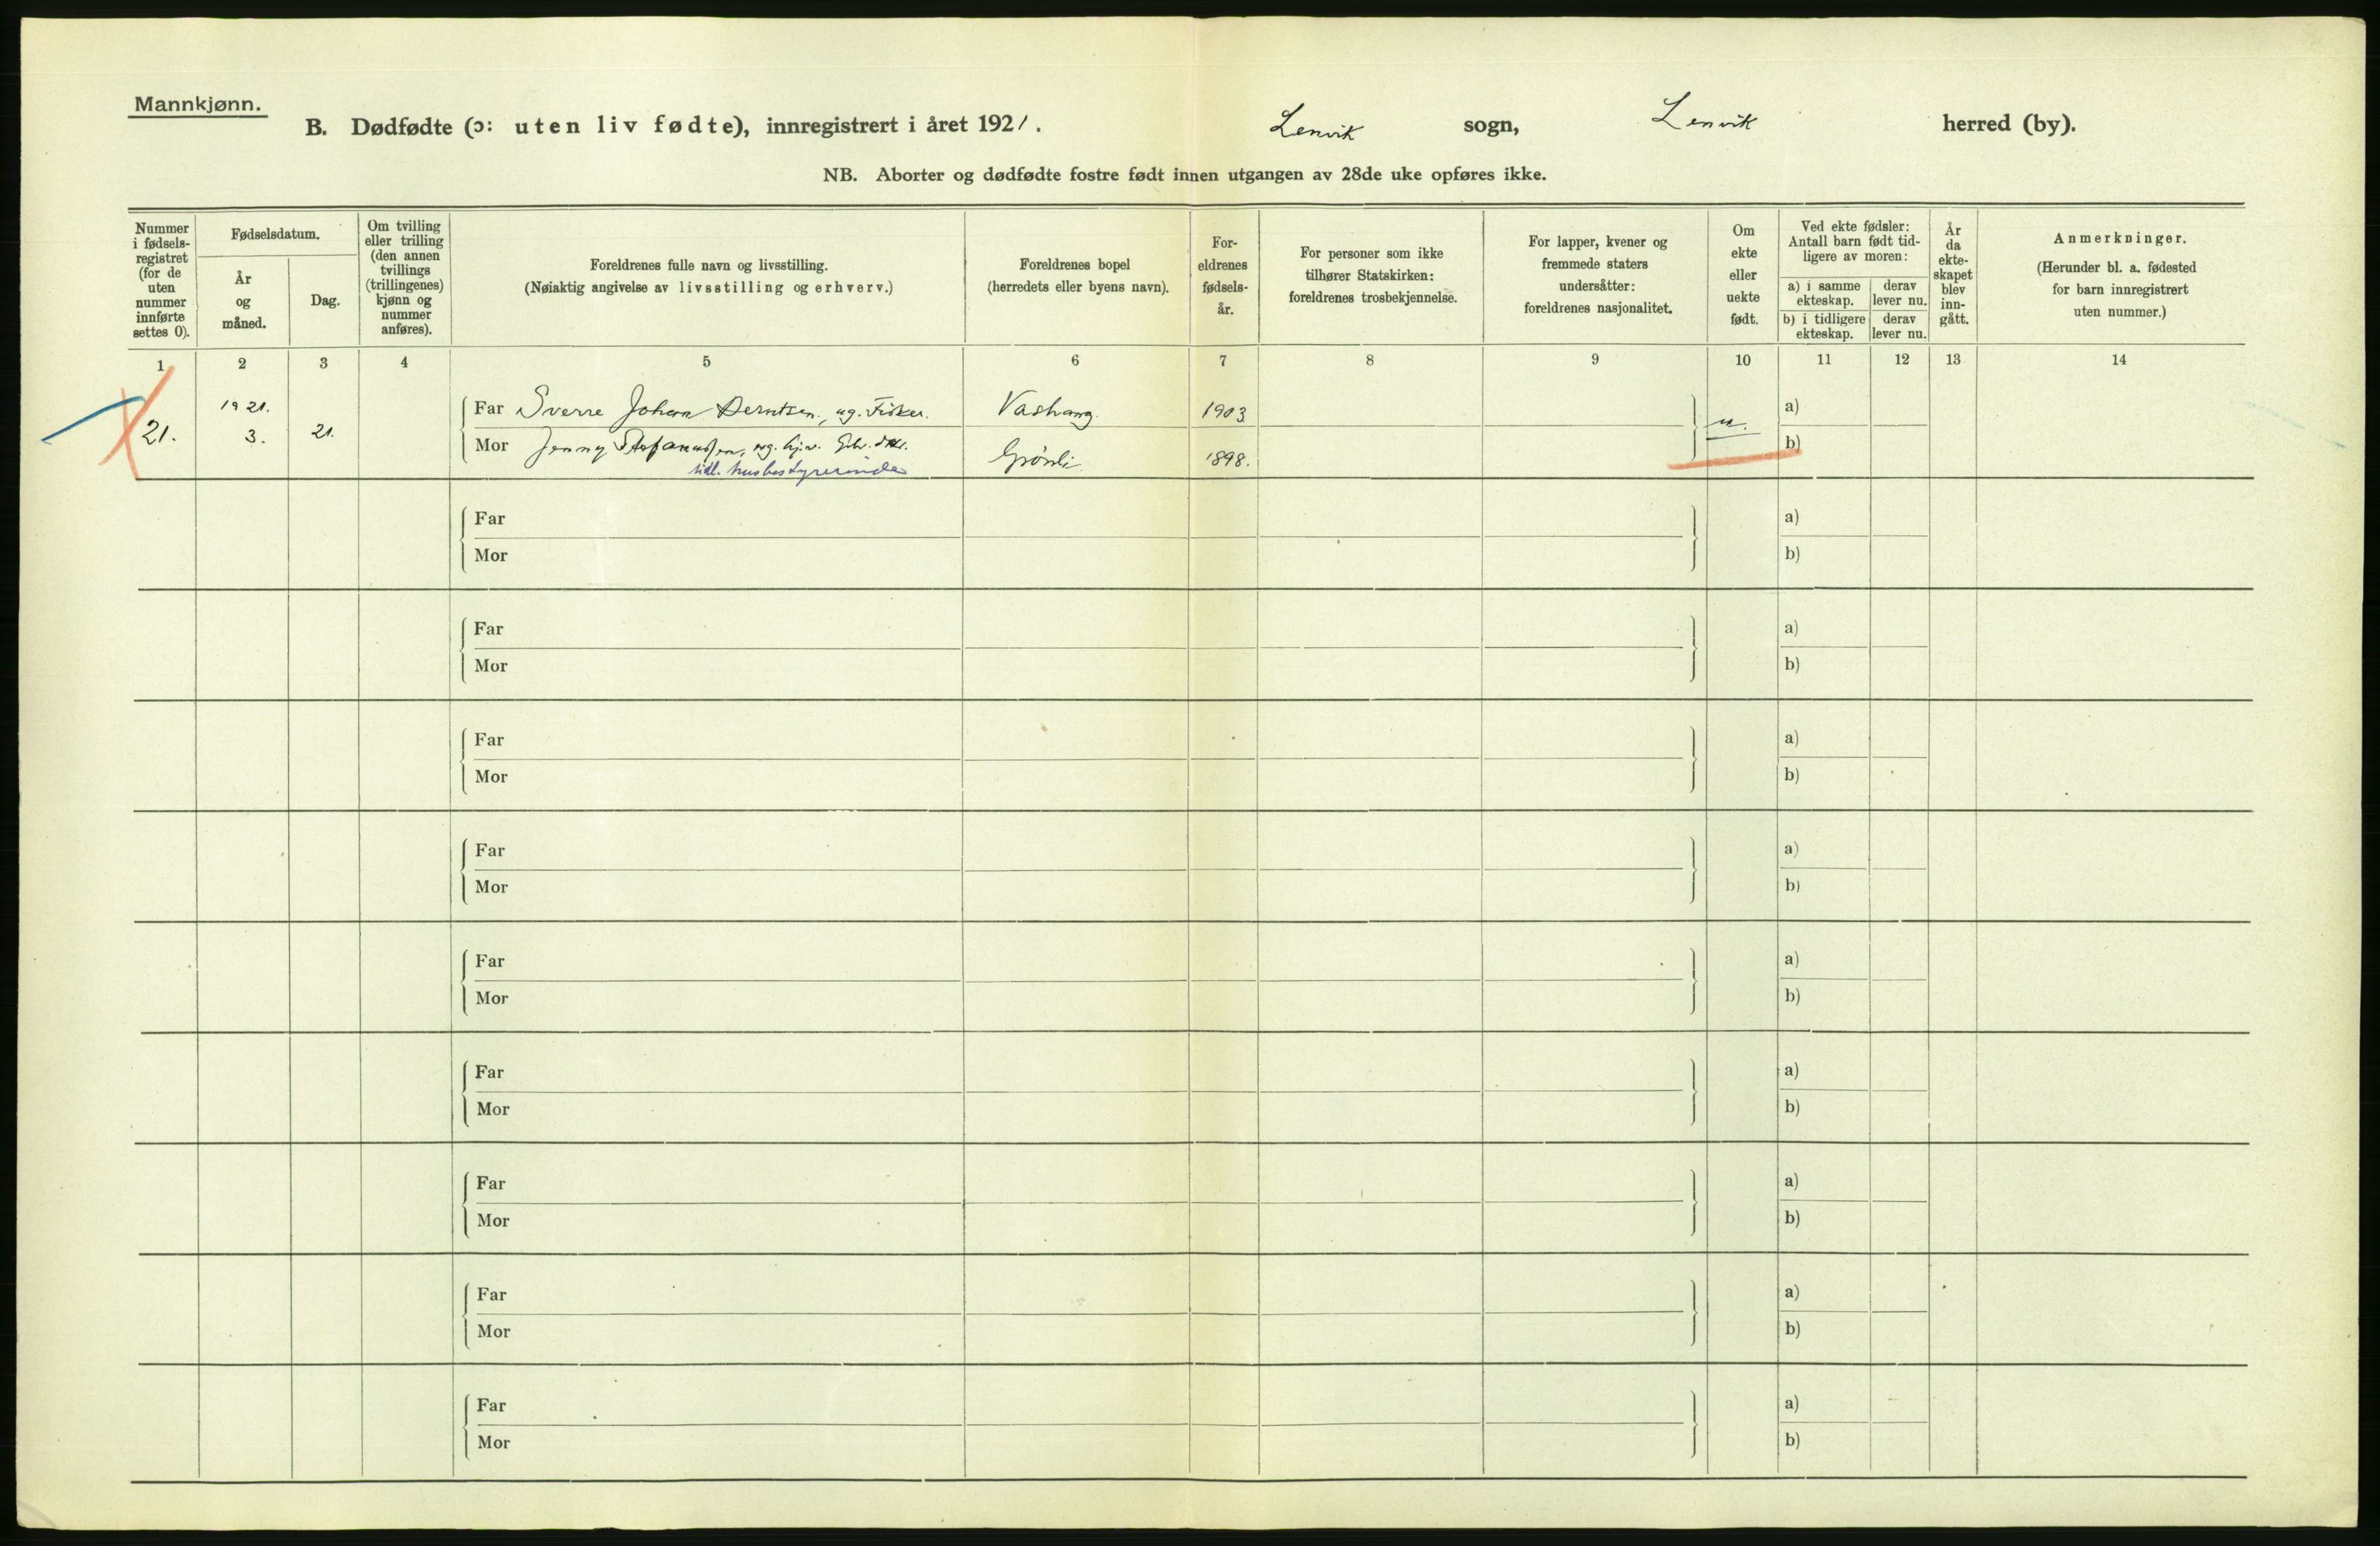 Mannkjønn.
B. Dødfødte (ɔ: uten liv fødte), innregistrert i året 1921. Lenvik sogn, Lenvik herred (by).
NB. Aborter og dødfødte fostre født innen utgangen av 28de uke opføres ikke.
Nummer
i fødsels-
registret
(for de
uten
nummer
innførte
settes 0).
Fødselsdatum.
År
og
måned.
Dag.
Om tvilling
eller trilling
(den annen
tvillings
(trillingenes)
kjønn og
nummer
anføres).
Foreldrenes fulle navn og livsstilling.
(Nøiaktig angivelse av livsstilling og erhverv.)
Foreldrenes bopel
(herredets eller byens navn).
For-
eldrenes
fødsels-
år.
For personer som ikke
tilhører Statskirken:
foreldrenes trosbekjennelse.
For lapper, kvener og
fremmede staters
undersåtter:
foreldrenes nasjonalitet.
Om
ekte
eller
uekte
født.
Ved ekte fødsler:
Antall barn født tid-
ligere av moren:
a) i samme
ekteskap.
derav
lever nu.
b) i tidligere
ekteskap.
derav
lever nu.
År
da
ekte-
skapet
blev
inn-
gått.
Anmerkninger.
(Herunder bl. a. fødested
for barn innregistrert
uten nummer.)
1 2 3 4 5 6 7 8 9 10 11 12 13 14
1921.
Far Sverre Johan Berntsen, ug. Fisker. Vashang. 1903 a)
21. 3. 21. u.
Mor Jenny Stefanussen, ug. Grønli 1898. b)
tidl. husbestyrerinde
Far a)
Mor b)
Far a)
Mor b)
Far a)
Mor b)
Far a)
Mor b)
Far a)
Mor b)
Far a)
Mor b)
Far a)
Mor b)
Far a)
Mor b)
Far a)
Mor b)